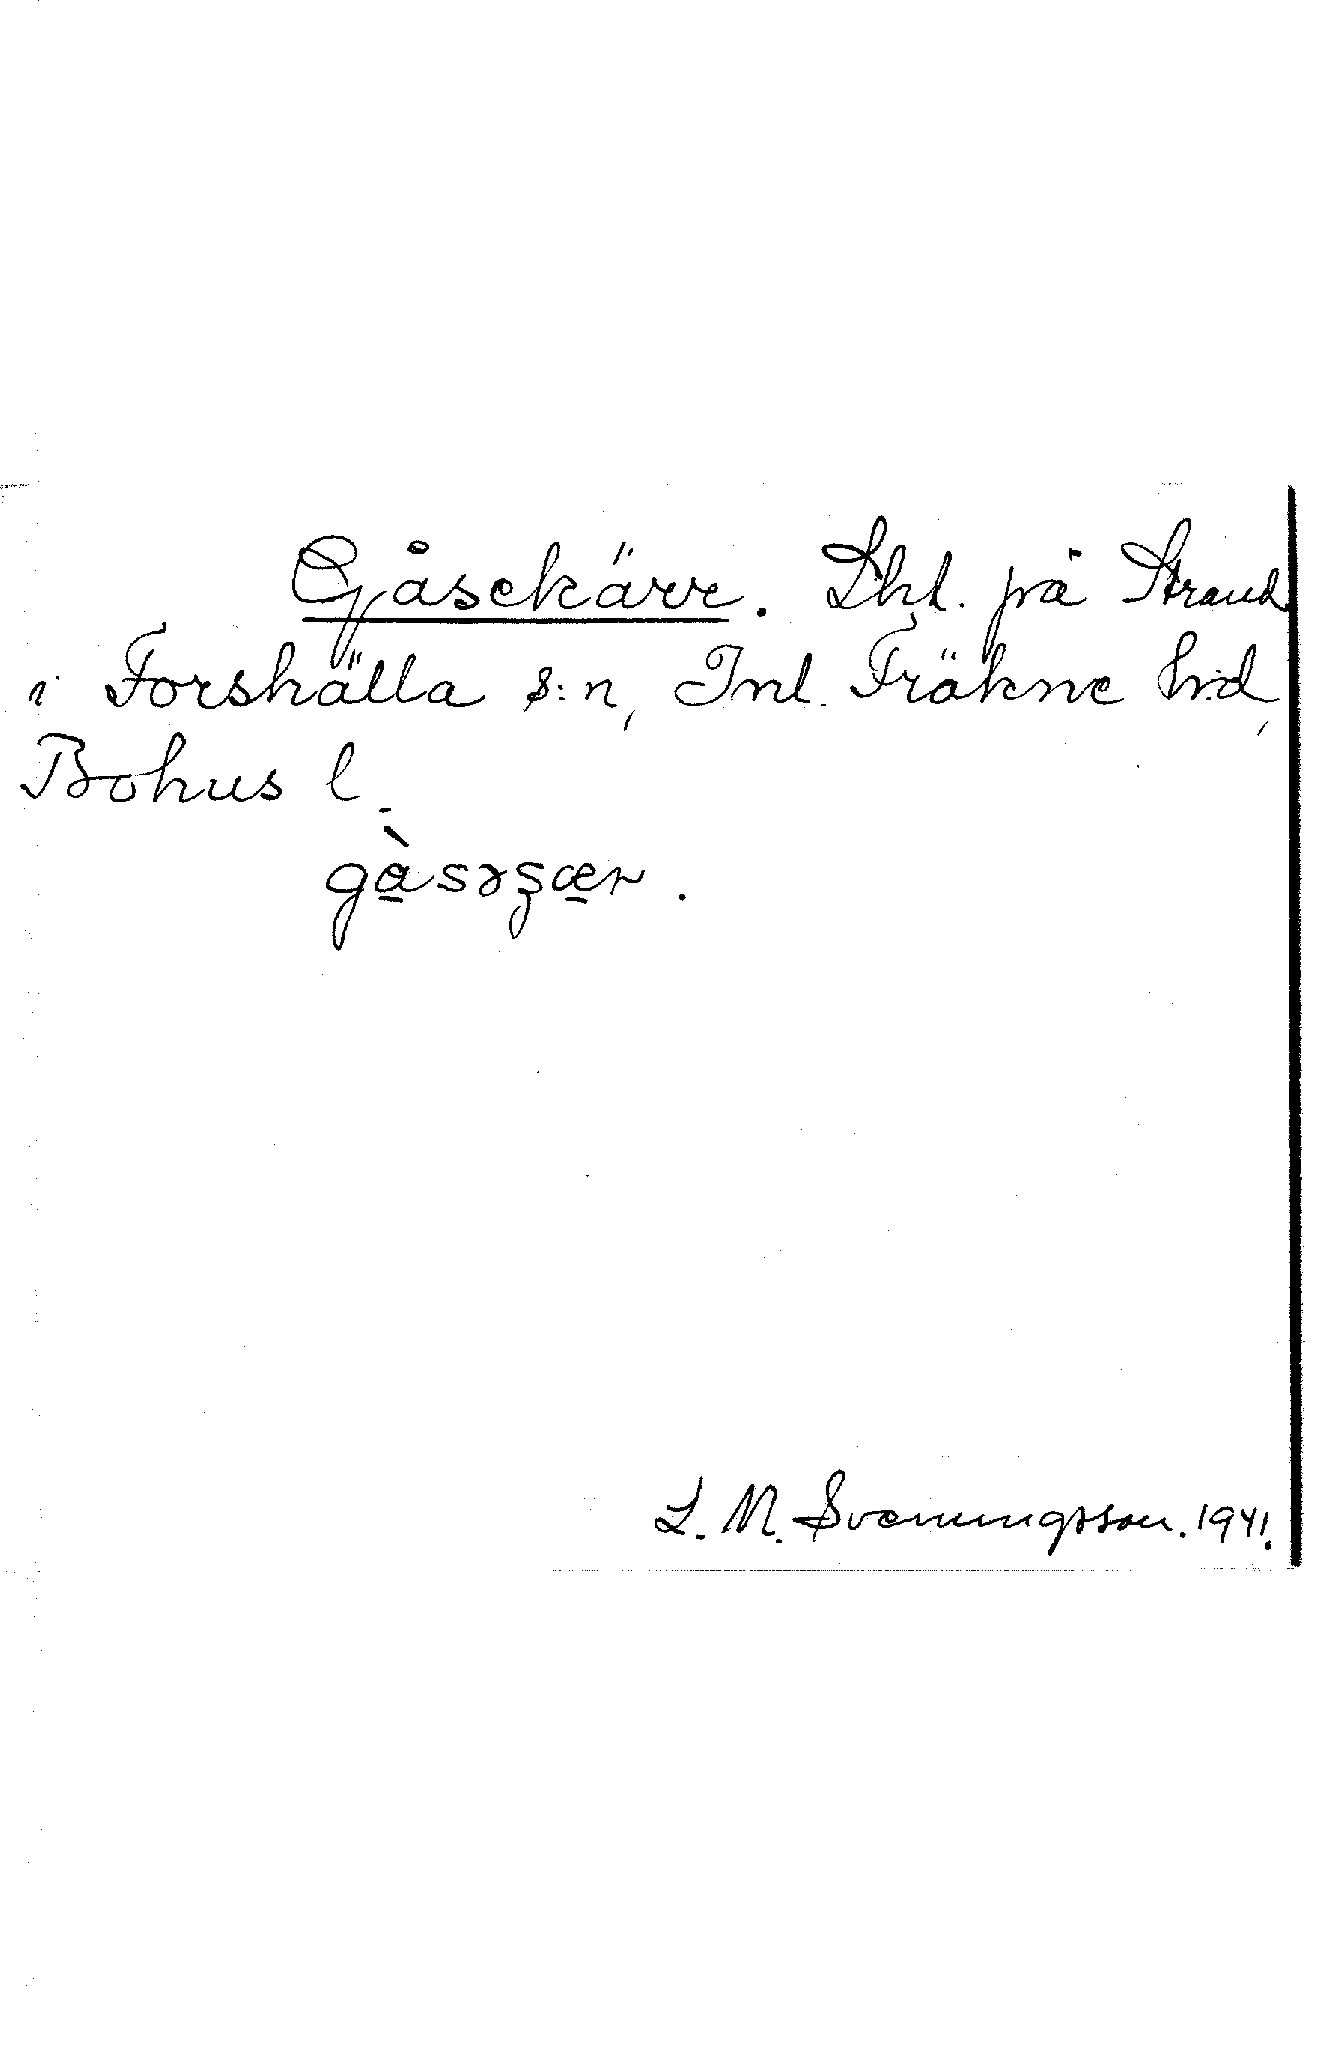 Gåsekärr. Lht. på Strand
i Forshälla s:n, Inl. Fräkne h:d,
Bohus l.
gàsəʂær.
L. M. Svenningsson. 1941.